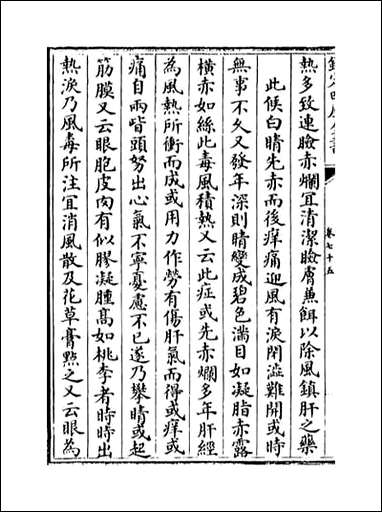 欽定四庫全書
卷七十五
熱多致連臉赤爛冝清潔臉膚兼餌以除風鎮肝之藥
此候白睛先赤而後痒痛迎風有淚閉澁難開或時
無事不久又發年深則睛變成碧色滿目如凝脂赤露
橫赤如絲此毒風積熱又云此症或先赤爛多年肝經
為風熱所衝而成或用力作勞有傷肝氣而得或痒或
痛自兩眥頭努出心氣不寧憂慮不已遂乃攀睛或起
筋膜又云眼胞皮肉有似膠凝腫髙如桃李者時時出
熱淚乃風毒所注冝消風散及花草膏點之又云眼為